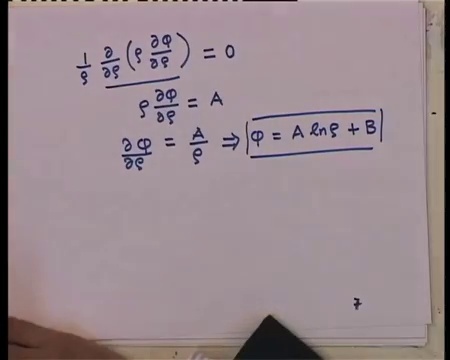 1/ρ ∂/∂ρ (ρ ∂φ/∂ρ) = 0
ρ ∂φ/∂ρ = A
∂φ/∂ρ = A/ρ ⇒ φ = A lnρ + B
7